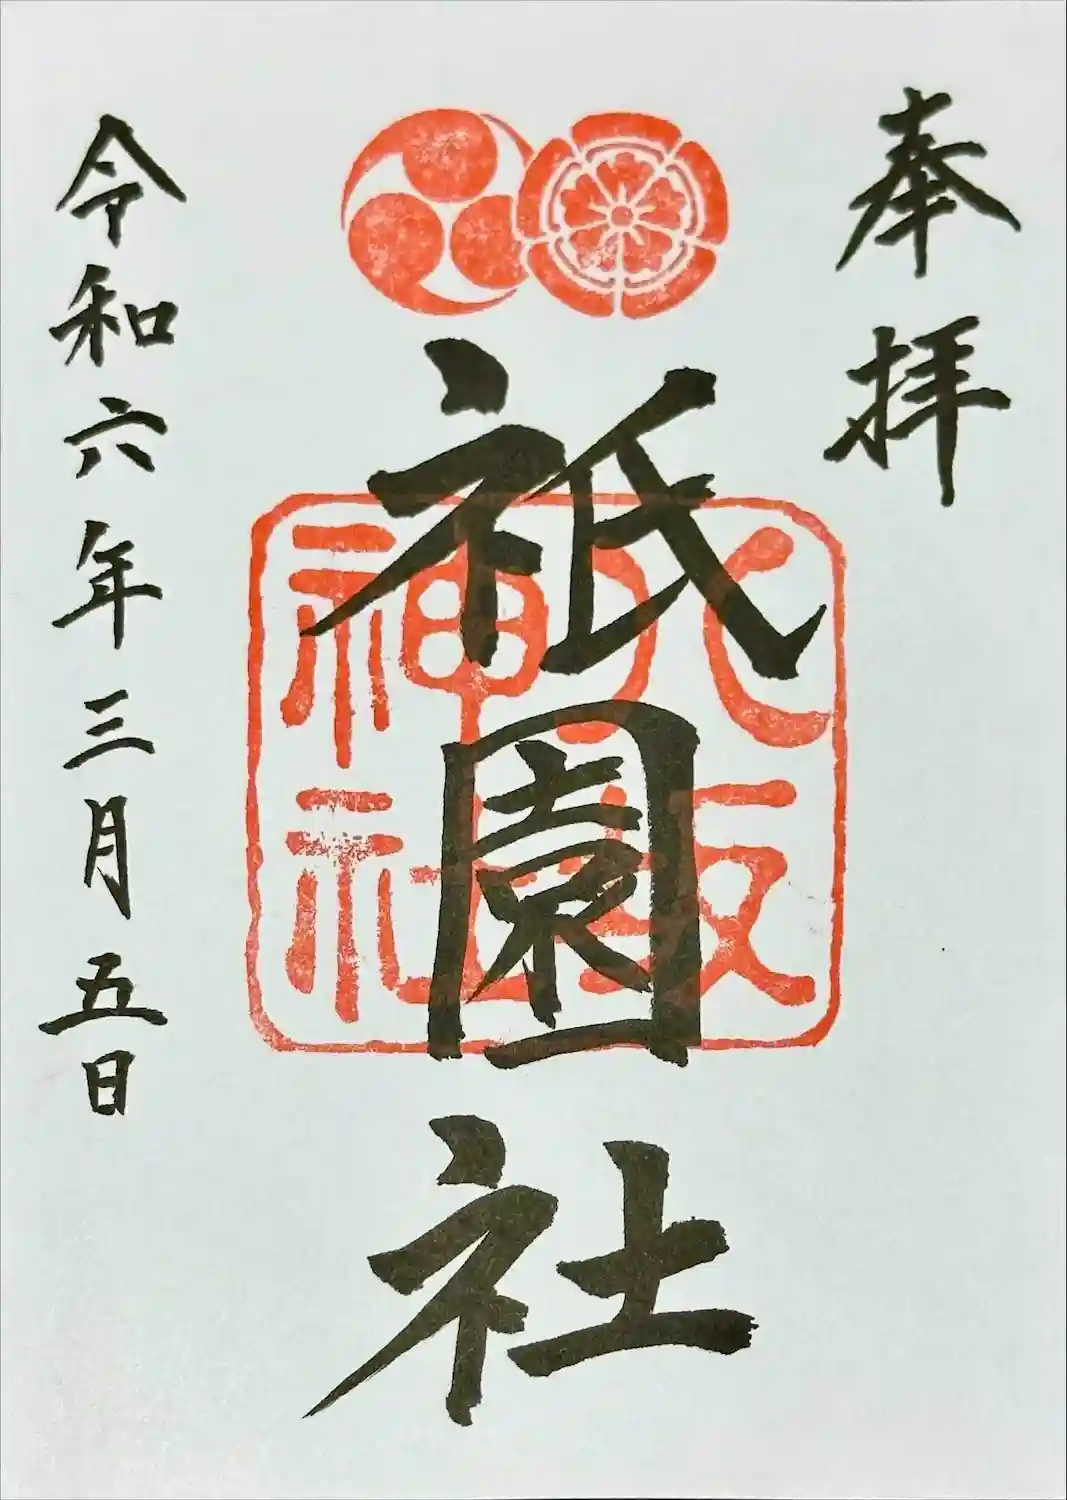 奉拝
祇園社
八坂
神社
令和六年三月五日